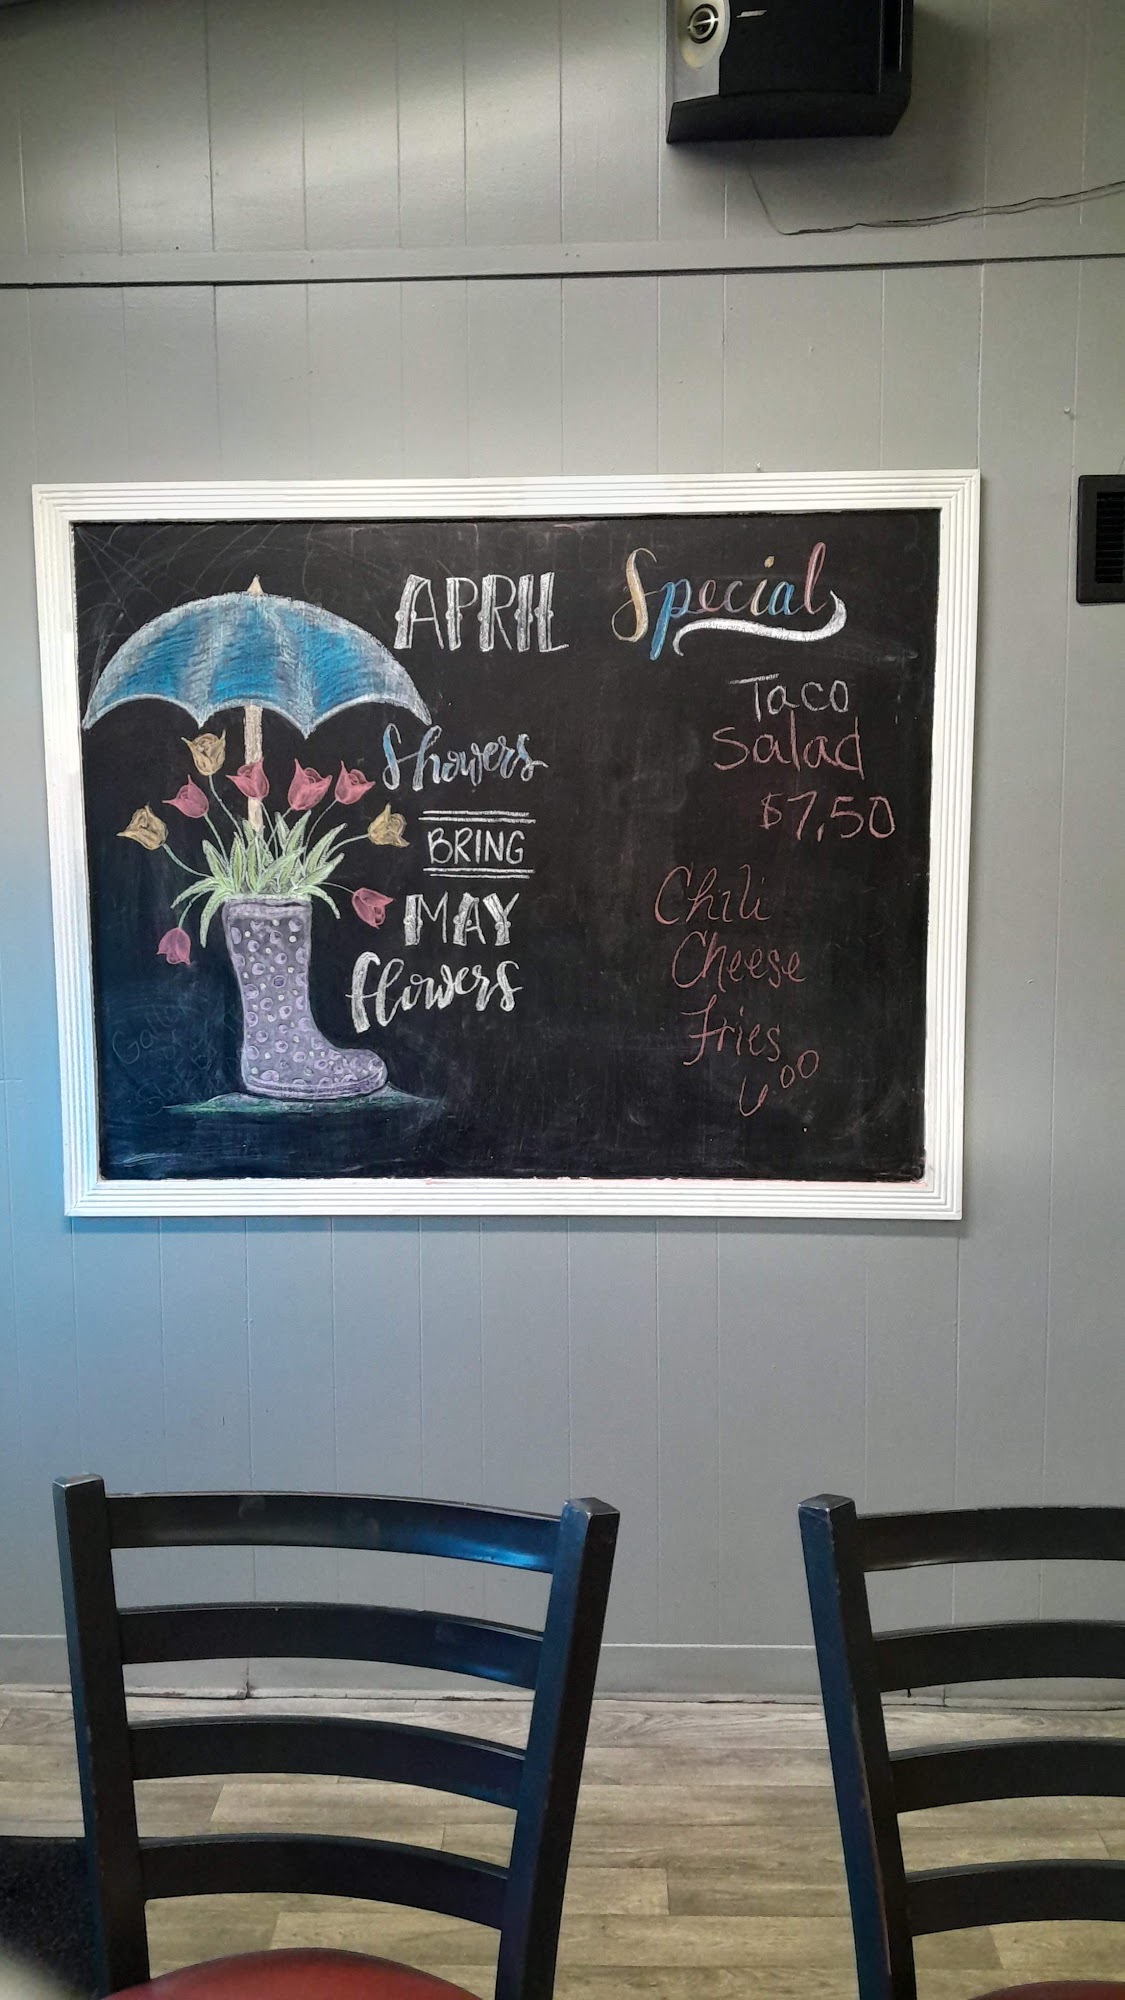 APRIL
Showers
BRING
MAY
flowers
Special
Taco
Salad
$7.50
Chili
Cheese
Fries
6.00